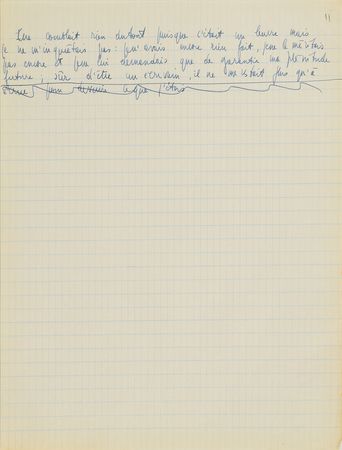 11
rien puisque c'était un leurre mais
je ne m'inquiétais pas : je n'avais encore rien fait, je ne le méritais
pas encore et je ne lui demandais que de garantir ma plénitude
future, sûr d'être un écrivain, il ne me restait plus qu'à
ce que j'étais